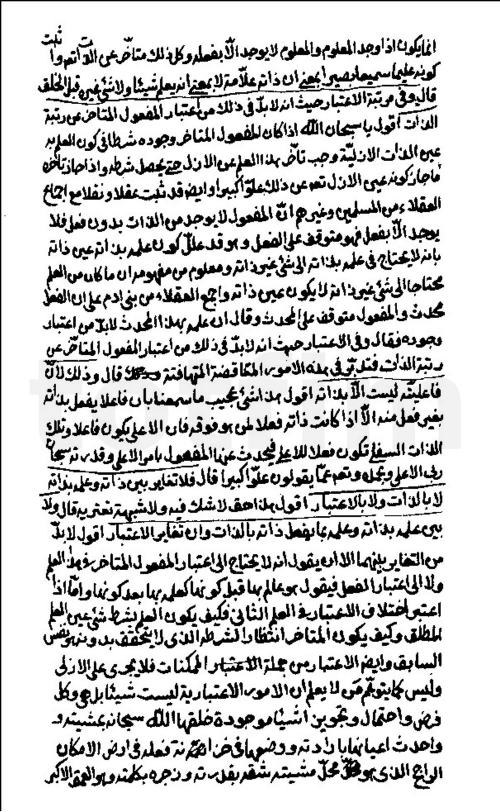 انما يكون اذا وجد المعلوم والمعلوم لا يوجد الّا بفعله وكل ذلك متأخّر عن الذات
كونه عليما سميعا بصيرا بمعنى ان ذاته علّامة لا بمعنى انه يعلم شيئا ولا شئ غيره قبل الخلق
قال وفى مرتبة الاعتبار حيث انه لابدّ فى ذلك من اعتبار المفعول المتاخر عن رتبة
الذات اقول يا سبحان الله اذا كان المفعول المتاخر وجوده شرطا فى كون العلم به
عين الذات الازليّة وجب تأخّر هذا العلم عن الازل حتى يحصل شرطه واذا جاز تأخره
فما جاز كونه عين الازل تعالى عن ذلك علوّا كبيرا وايضا قد ثبت عقلا ونقلا مع اجماع
العقلاء من المسلمين وغيرهم انّ المفعول لا يوجد من الذات بدون فعل فلا
يوجد الّا بفعل فهو متوقف على الفعل وهو قد علّل كون علمه بذاته عين ذاته
بانه لا يحتاج فى علمه بذاته الى شئ غير ذاته ومعلوم من مفهومه ان ما كان من العلم
محتاجا الى شئ غير ذاته لا يكون عين ذاته واجمع العقلاء من بنى ادم على ان الفعل
محدث والمفعول متوقف على المحدث وقال ان علمه بهذا المحدث لابدّ من اعتبار
وجوده فقال وفى الاعتبار حيث انه لابدّ فى ذلك من اعتبار المفعول المتاخر عن
رتبة الذات فتدبّر فى هذه الامور المتناقضة المتهافتة قال وذلك لانّ
فاعليّته ليست الّا بذاته اقول هذا شئ عجيب ما سمعنا بان فاعلا يفعل بذاته
بغير فعل منه الّا اذا كانت ذاته فعلا لمن هو فوقه فان الاعلى يكون فاعلا وتلك
الذات السفلى تكون فعلا للاعلى فيحدث عنها المفعول بامر الاعلى وقدرته سبحان
ربى الاعلى وبحمده وتعالى عمّا يقولون علوّا كبيرا قال فلا تغاير بين ذاته وعلمه بذاته
لا بالذات ولا بالاعتبار اقول هذا حق لا شك فيه ولا شبهة تعتريه قال ولا
بين علمه بذاته وعلمه بما يفعل ذاته بالذات وان تغاير الاعتبار اقول لابدّ
من التغاير بينهما الّا ان يقول انه لا يحتاج الى اعتبار المفعول المتاخر فى هذا العلم
ولا الى اعتبار الفعل فيقول هو عالم بها قبل كونها كعلمه بها بعد كونها وامّا اذا
اعتبر اختلاف الاعتبار فى العلم الثانى فكيف يكون العلم بشرط شئ عين العلم
المطلق وكيف يكون المتاخر انتظارا لشرطه الذى لا يتحقق بدونه نفس
السابق وايضا الاعتبار من جملة الممكنات فلا يجرى على الازلى
وليس كما يتوهّم من لا يعلم ان الامور الاعتبارية ليست شيئا بل هى وكل
فرض واحتمال وتجويز اشياء موجودة خلقها الله سبحانه بمشيته و
واحدث اعيانها بارادته ووضعها فى خزائنه فعله فى ارض الامكان
الراجح الذى هو محلّ مشيته شقه بقدرته وزجره بكلمته وهو العمق الاكبر